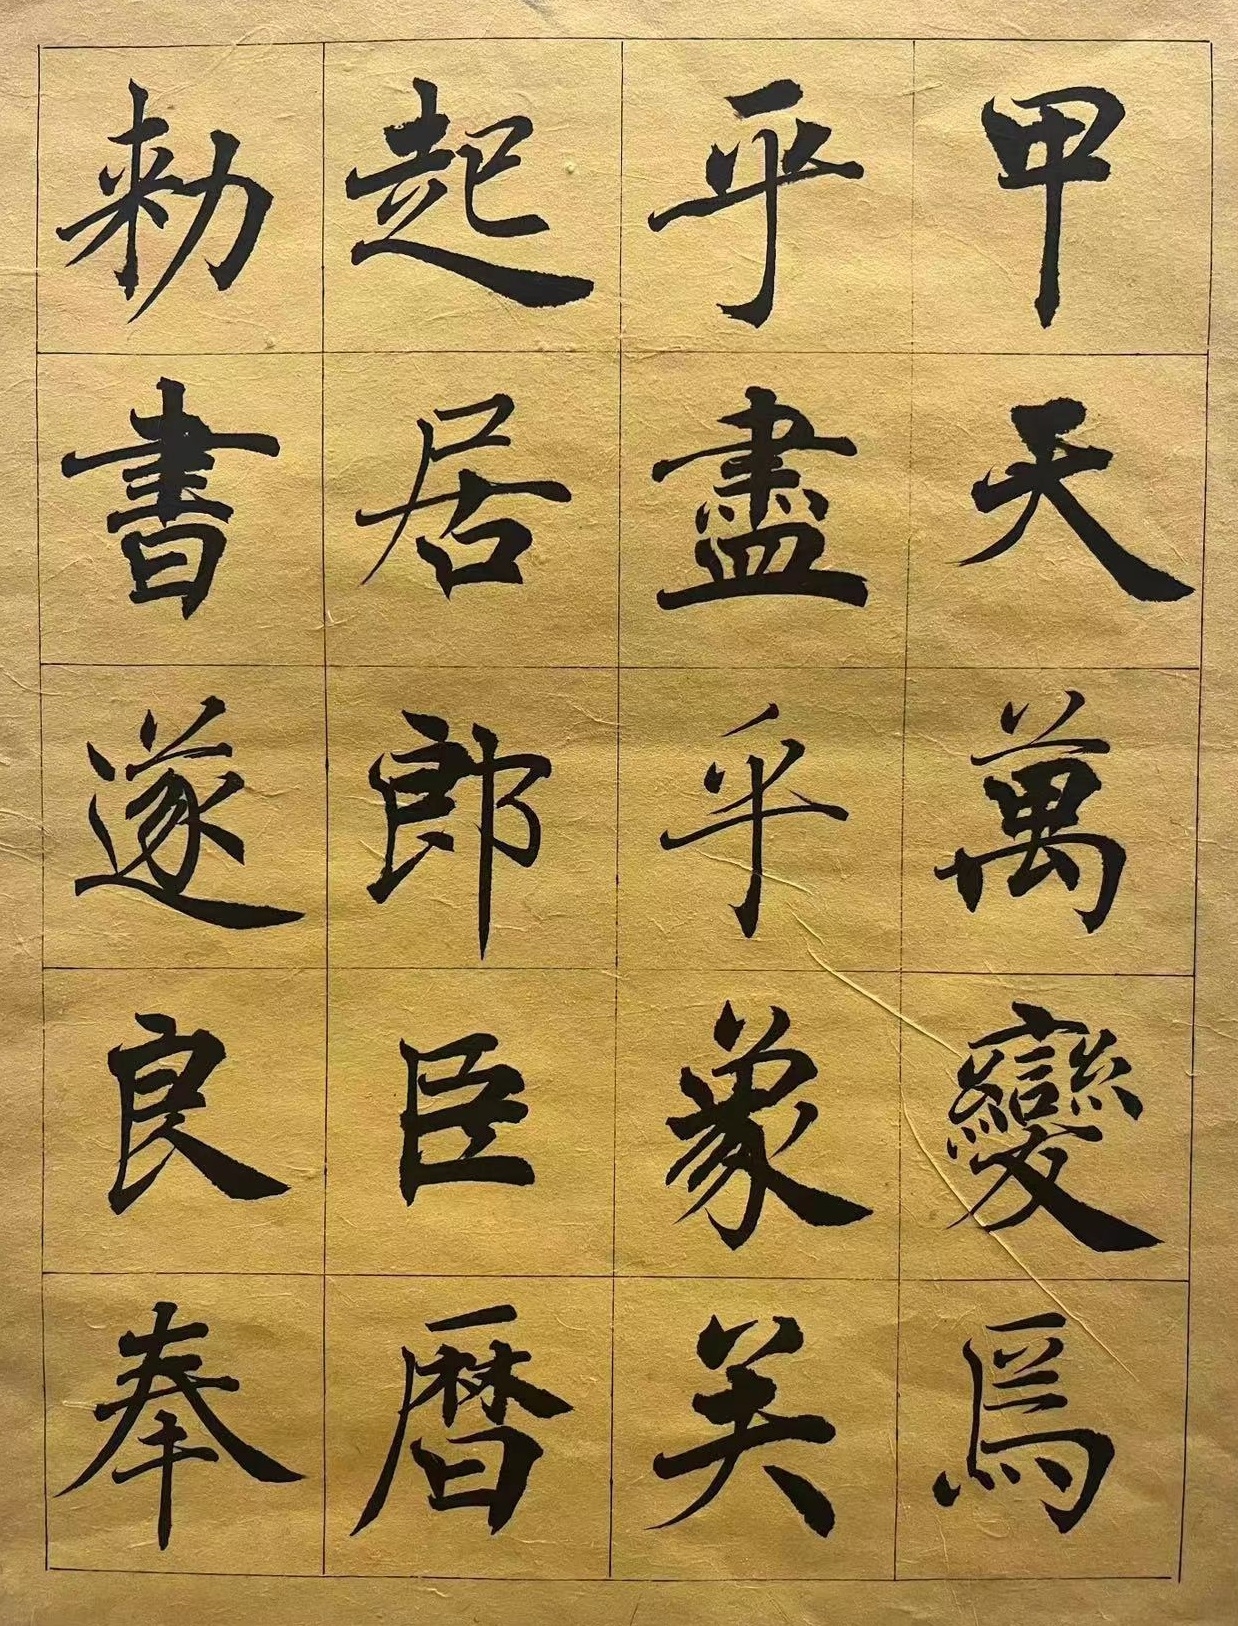 甲天萬變爲
乎盡乎象关
起居郎臣暦
勅書遂良奉